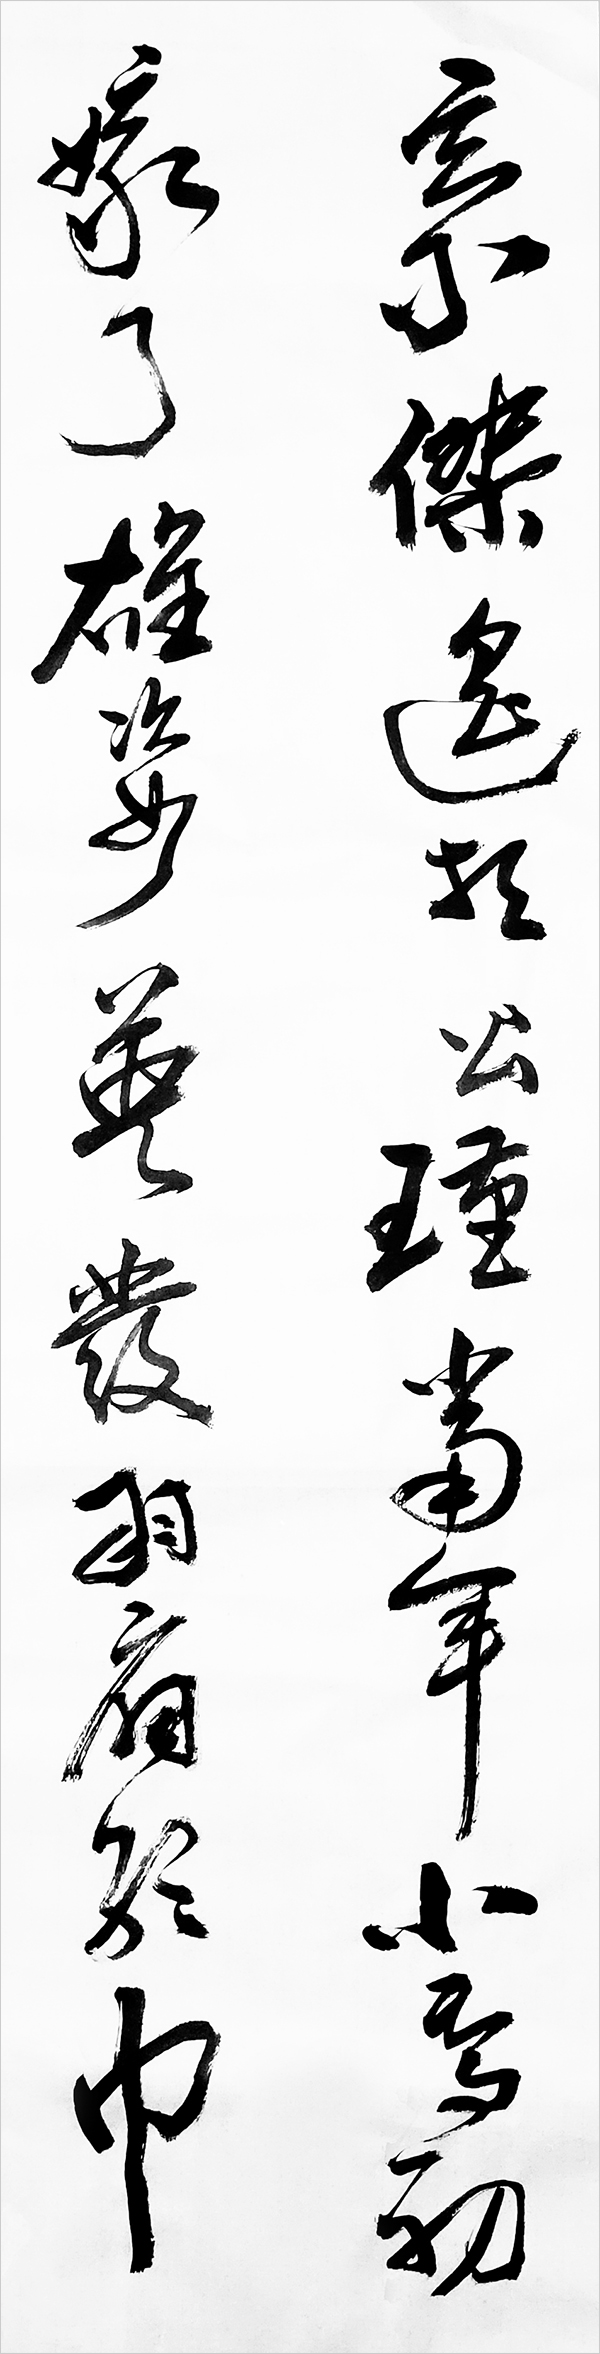 豪傑遙想公瑾當年小喬初
嫁了雄姿英發羽扇綸巾